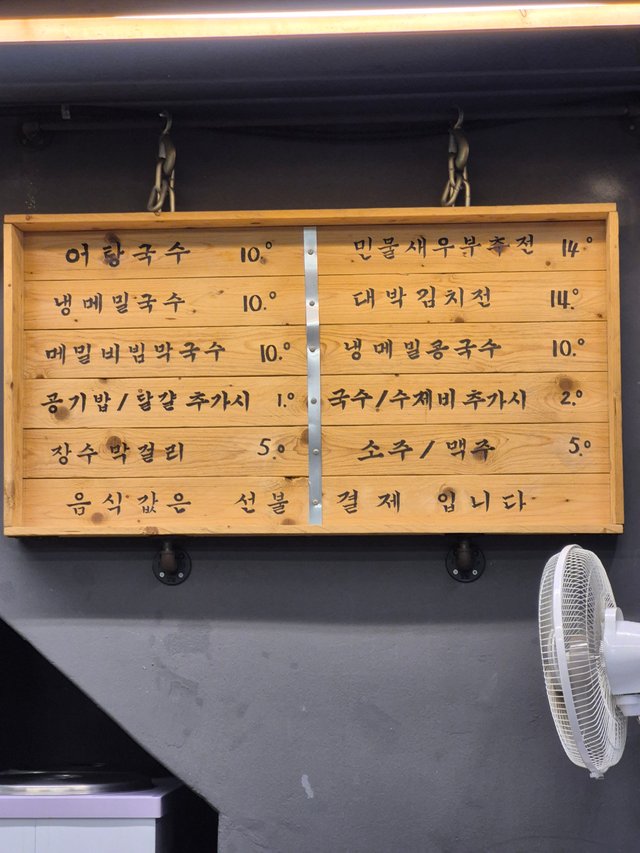 어탕국수 10.⁰
냉메밀국수 10.⁰
메밀비빔막국수 10.⁰
공기밥/달걀 추가시 1.⁰
장수막걸리 5.⁰
민물새우부추전 14.⁰
대박김치전 14.⁰
냉메밀콩국수 10.⁰
국수/수제비추가시 2.⁰
소주/맥주 5.⁰
음식값은 선불 결제 입니다